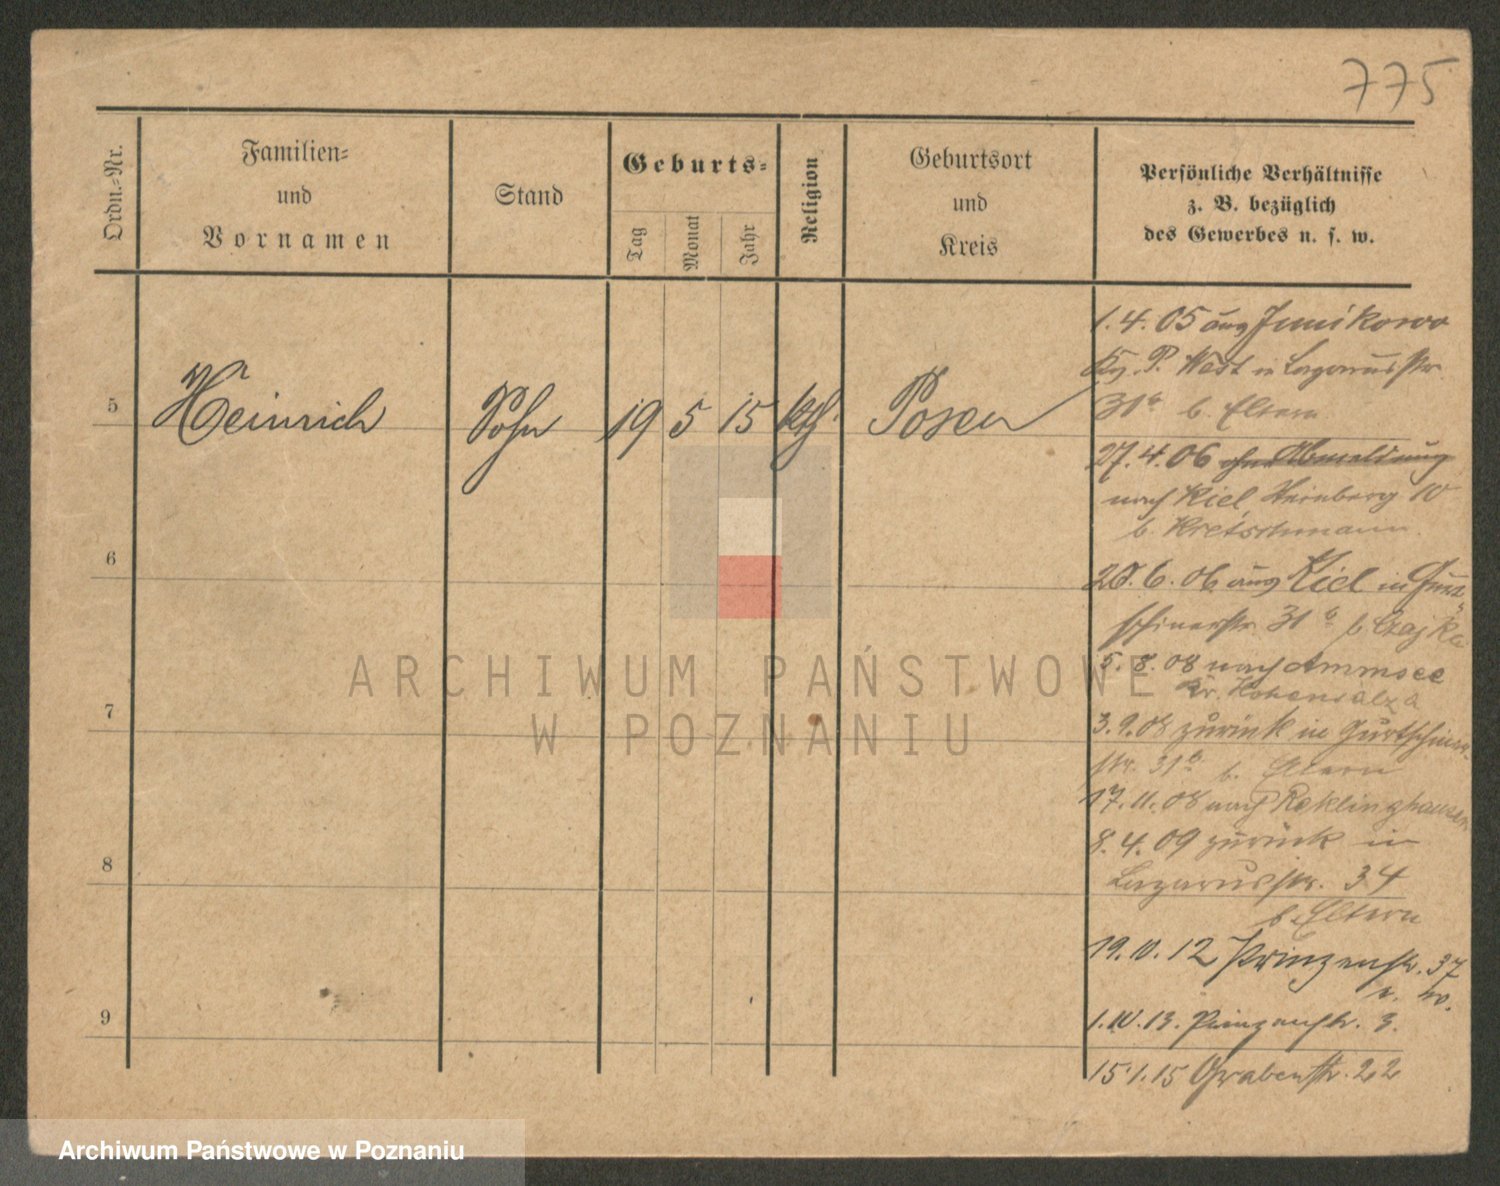 775
Ordn.-Nr.
Familien-
und
Vornamen
Stand
Geburts-
Tag
Monat
Jahr
Religion
Geburtsort
und
Kreis
Persönliche Verhältnisse
z. B. bezüglich
des Gewerbes u. s. w.
5
Heinrich
Sohn
19
5
15
kth.
Posen
1.4.05 aus Junikowo
Kr. P. West in Lazarusstr.
31a b. Eltern
27.4.06 ohne Abmeldung
nach Kiel 10
b. Kretschmann.
6
6.06 aus Kiel in Gurt-
schinerstr. 31 b. Czajka
5.8.08 nach Ammsee
Kr. Hohensalza
7
3.9.08 zurück in Gurtschiner-
str. 31 b. Eltern
17.11.08 nach Reklinghausen
8
8.4.09 zurück in
Lazarusstr. 34
b. Eltern
9
19.10.12 Prinzenstr. 37
1.10.13. Prinzenstr. 3.
15.1.15 Grabenstr. 22
ARCHIWUM PAŃSTWOWE
W POZNANIU
Archiwum Państwowe w Poznaniu